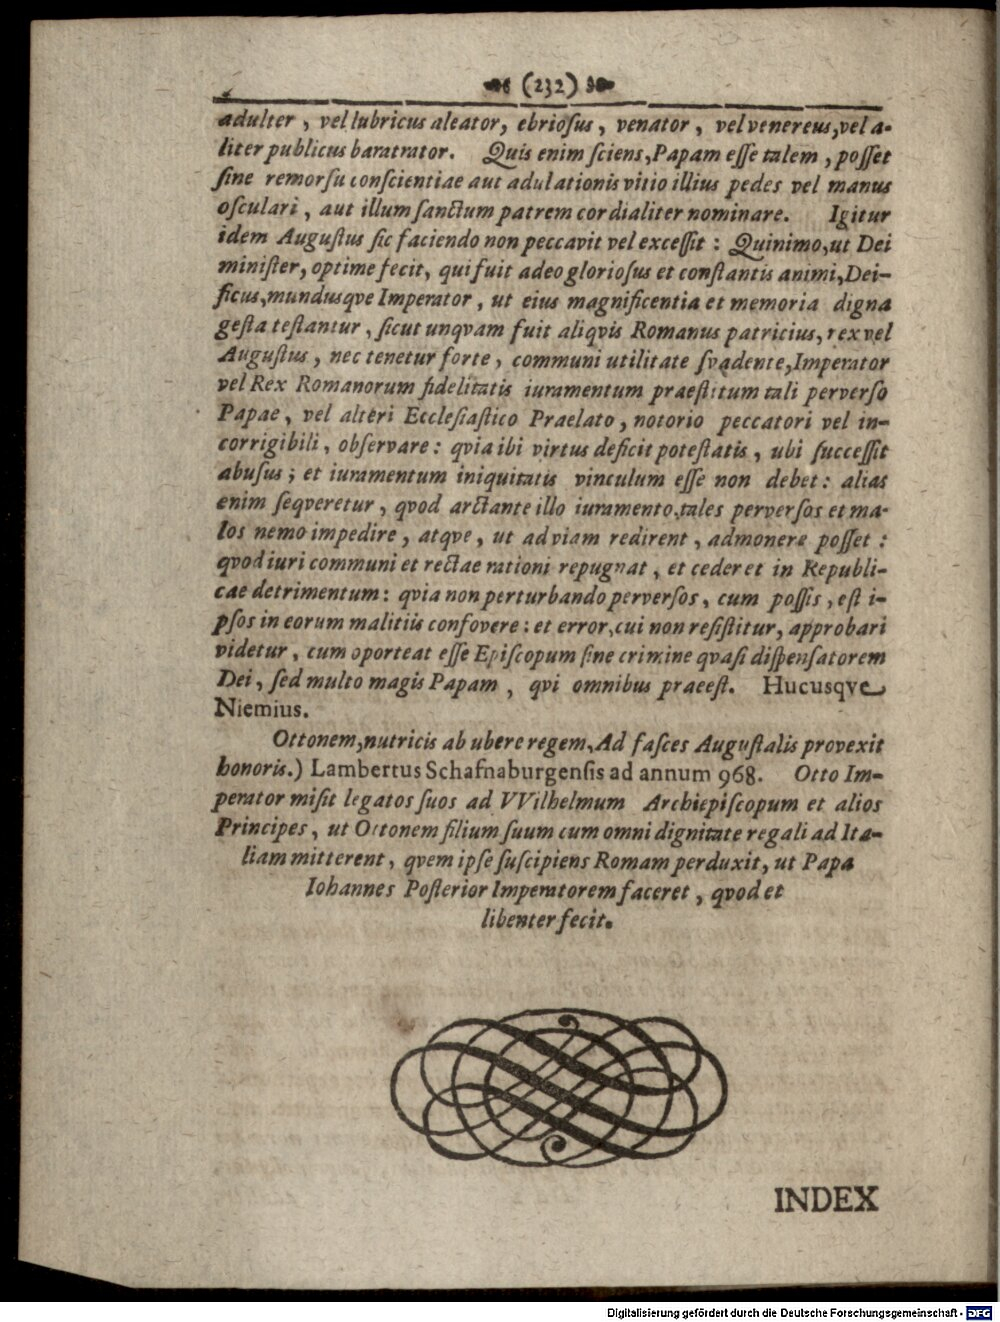 (232)
adulter, vel lubricus aleator, ebrioſus, venator, vel venereus, vel a-
liter publicus baratrator. Quis enim ſciens, Papam eſſe talem, poſſet
ſine remorſu conſcientiae aut adulationis vitio illius pedes vel manus
oſculari, aut illum ſanctum patrem cordialiter nominare. Igitur
idem Auguſtus ſic faciendo non peccavit vel exceſſit: Quinimo, ut Dei
miniſter, optime fecit, qui fuit adeo glorioſus et conſtantis animi, Dei-
ficus, mundusqve Imperator, ut eius magnificentia et memoria digna
geſta teſtantur, ſicut unqvam fuit aliqvis Romanus patricius, rex vel
Auguſtus, nec tenetur forte, communi utilitate ſvadente, Imperator
vel Rex Romanorum fidelitatis iuramentum praeſtitum tali perverſo
Papae, vel alteri Eccleſiaſtico Praelato, notorio peccatori vel in-
corrigibili, obſervare: qvia ibi virtus deficit poteſtatis, ubi ſucceſſit
abuſus; et iuramentum iniquitatis vinculum eſſe non debet: alias
enim ſeqveretur, qvod arctante illo iuramento, tales perverſos et ma-
los nemo impedire, atqve, ut ad viam redirent, admonere poſſet:
qvod iuri communi et rectae rationi repugnat, et cederet in Republi-
cae detrimentum: qvia non perturbando perverſos, cum poſſis, eſt i-
pſos in eorum malitiis confovere: et error, cui non reſiſtitur, approbari
videtur, cum oporteat eſſe Epiſcopum ſine crimine qvaſi diſpenſatorem
Dei, ſed multo magis Papam, qvi omnibus praeeſt. Hucusqve
Niemius.
Ottonem, nutricis ab ubere regem, Ad faſces Auguſtalis provexit
honoris.) Lambertus Schafnaburgenſis ad annum 968. Otto Im-
perator miſit legatos ſuos ad VVilhelmum Archiepiſcopum et alios
Principes, ut Ottonem filium ſuum cum omni dignitate regali ad Ita-
liam mitterent, qvem ipſe ſuſcipiens Romam perduxit, ut Papa
Iohannes Poſterior Imperatorem faceret, qvod et
libenter fecit.
INDEX
Digitalisierung gefördert durch die Deutsche Forschungsgemeinschaft - DFG